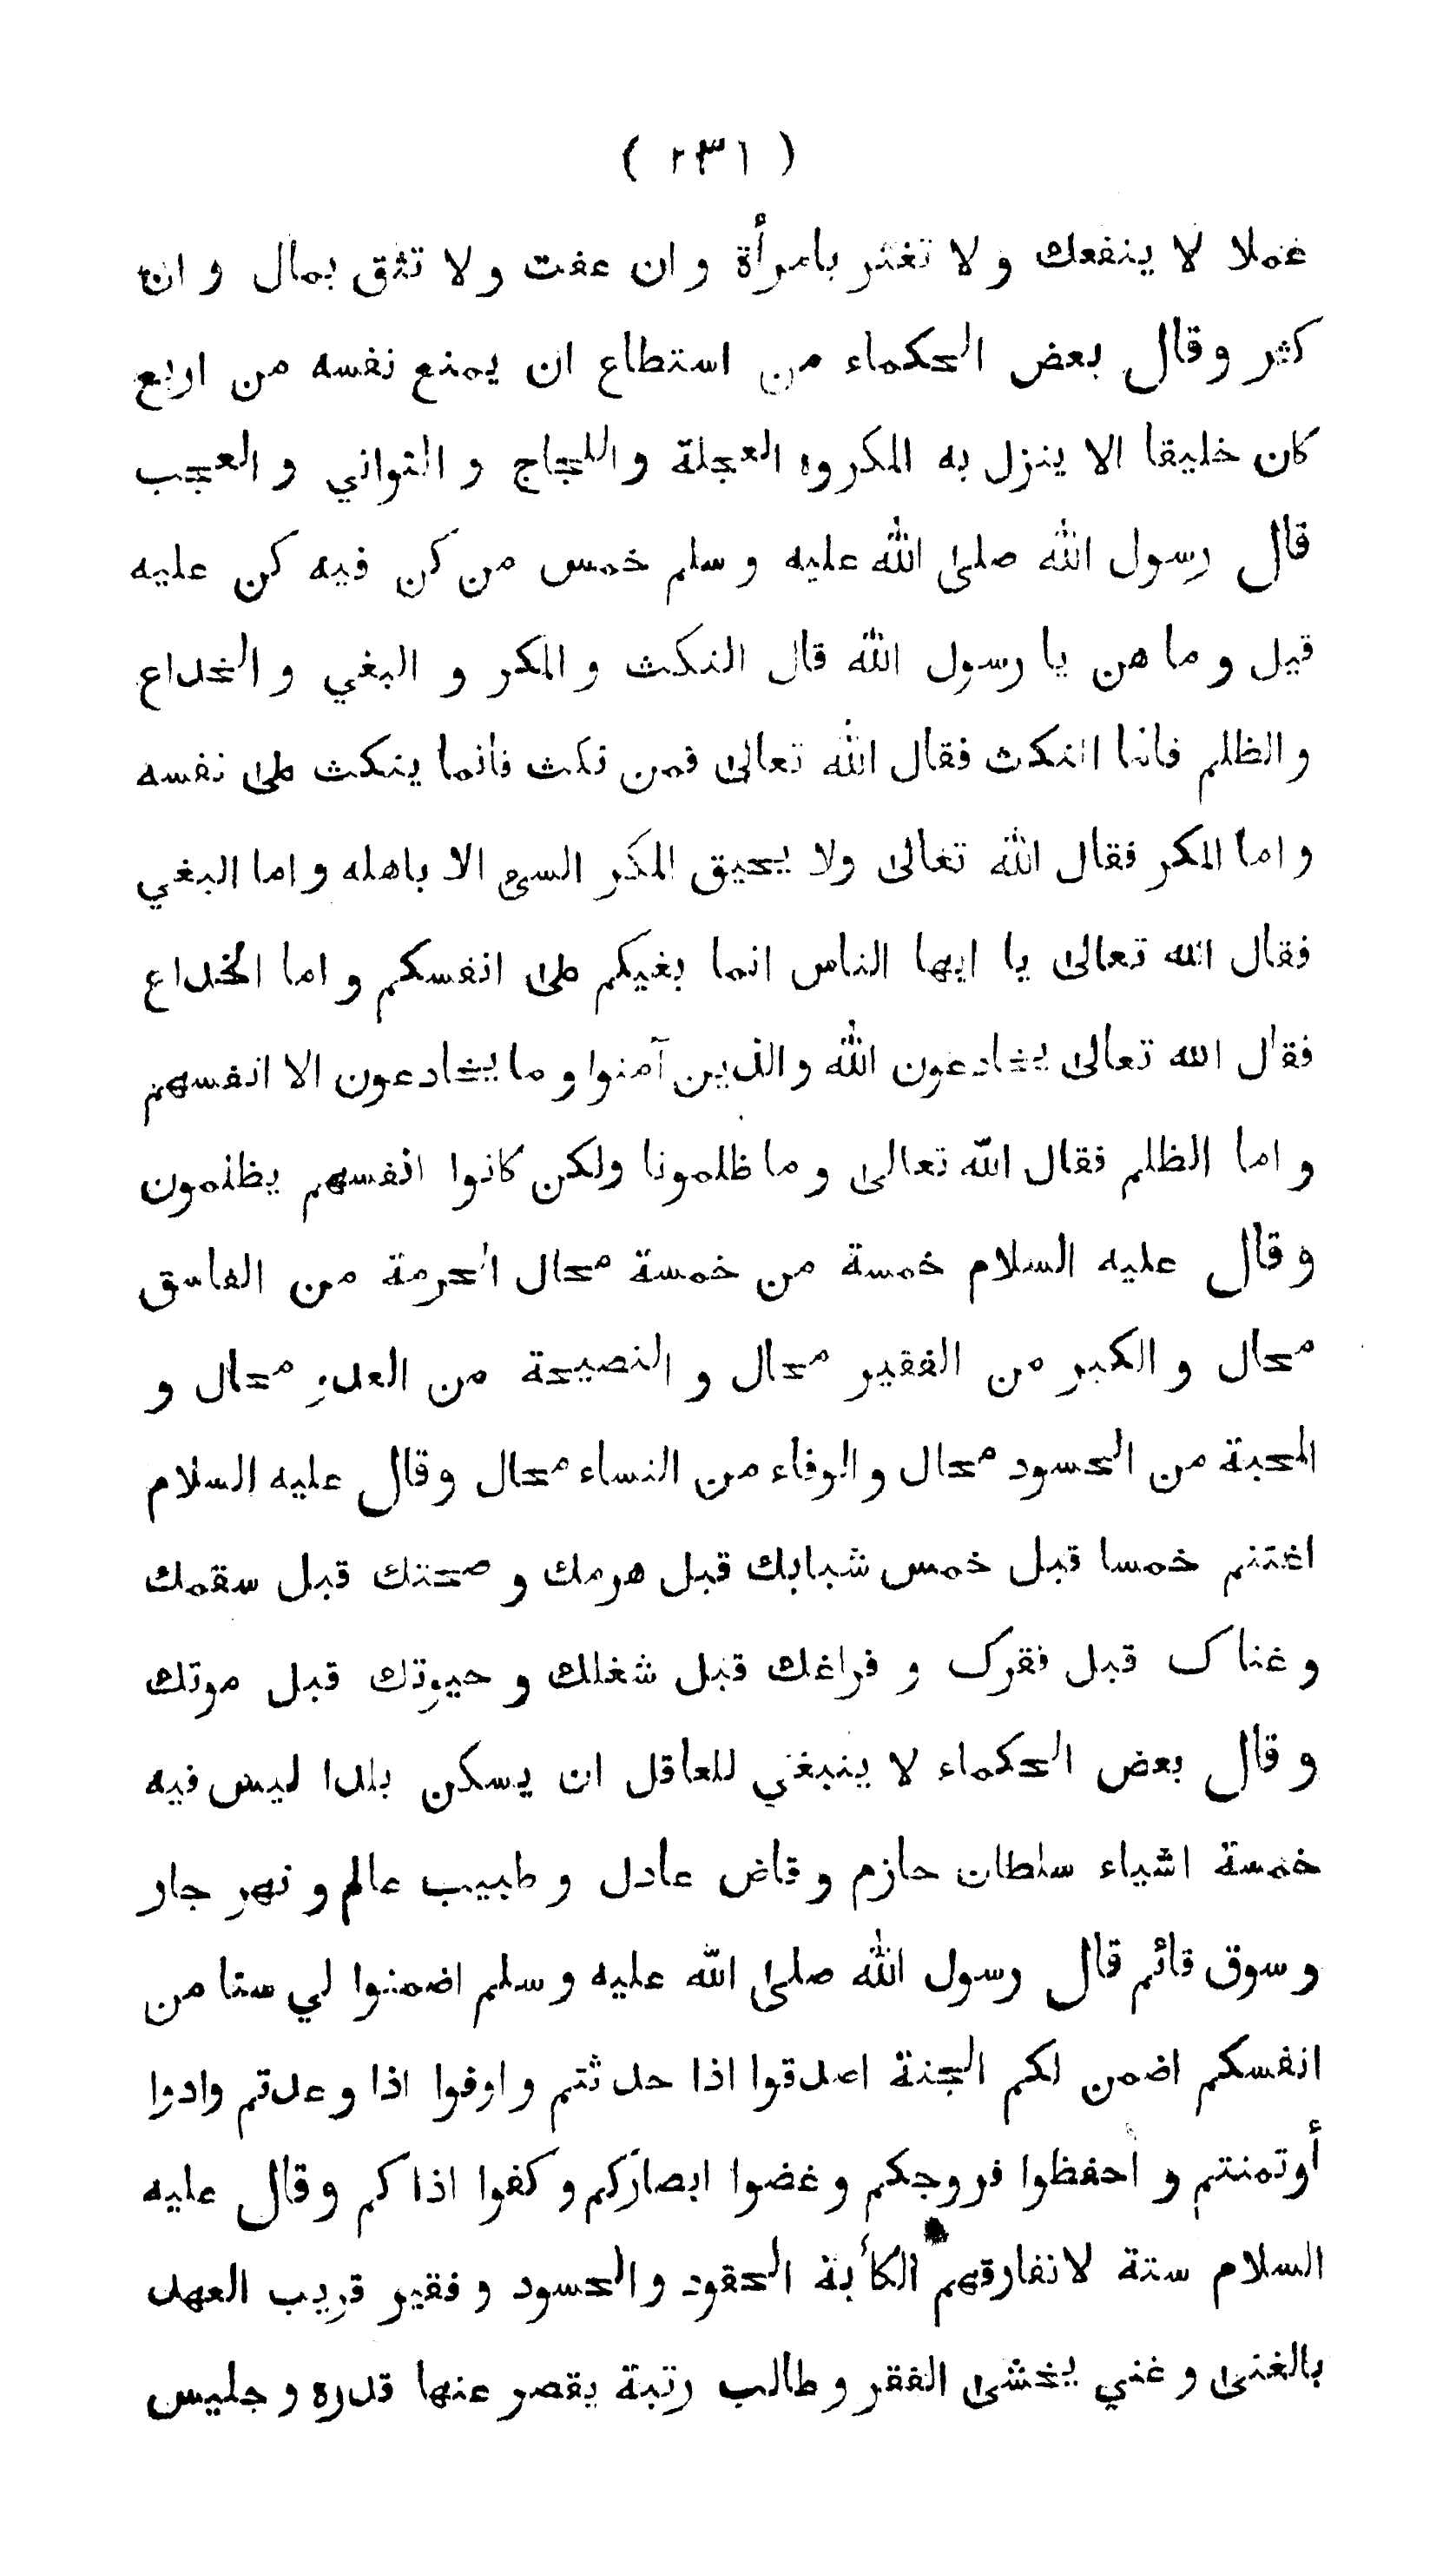 ( ٢٣١ )
عملا لا ينفعك ولا تغتر بامرأة وان عفت ولا تثق بمال وان
كثر وقال بعض الحكماء من استطاع ان يمنع نفسه من اربع
كان خليقا الا ينزل به المكروه العجلة واللجاج و التواني و العجب
قال رسول الله صلى الله عليه وسلم خمس من كن فيه كن عليه
قيل وما هن يا رسول الله قال النكث و المكر و البغي و الخداع
والظلم فاما النكث فقال الله تعالى فمن نكث فانما ينكث على نفسه
واما المكر فقال الله تعالى ولا يحيق المكر السيء الا باهله واما البغي
فقال الله تعالى يا ايها الناس انما بغيكم على انفسكم واما الخداع
فقال الله تعالى يخادعون الله والذين آمنوا وما يخادعون الا انفسهم
واما الظلم فقال الله تعالى وما ظلمونا ولكن كانوا انفسهم يظلمون
وقال عليه السلام خمسة من خمسة محال الحرمة من الفاسق
محال و الكبر من الفقير محال و النصيحة من العدو محال و
المحبة من الحسود محال والوفاء من النساء محال وقال عليه السلام
اغتنم خمسا قبل خمس شبابك قبل هرمك و صحتك قبل سقمك
وغناك قبل فقرك و فراغك قبل شغلك و حيوتك قبل موتك
وقال بعض الحكماء لا ينبغي للعاقل ان يسكن بلدا ليس فيه
خمسة اشياء سلطان حازم وقاض عادل وطبيب عالم ونهر جار
وسوق قائم قال رسول الله صلى الله عليه وسلم اضمنوا لي ستا من
انفسكم اضمن لكم الجنة اصدقوا اذا حدثتم واوفوا اذا وعدتم وادوا
أوتمنتم و احفظوا فروجكم وغضوا ابصاركم وكفوا اذاكم وقال عليه
السلام ستة لاتفارقهم الكأبة الحقود والحسود وفقير قريب العهد
بالغنى وغني يخشى الفقر وطالب رتبة يقصر عنها قدره وجليس